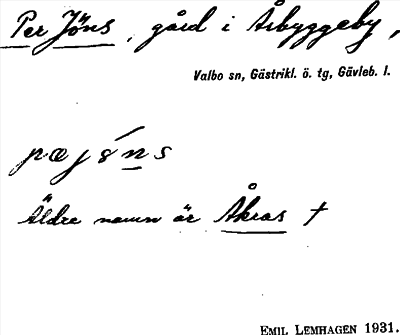 Per Jöns, gård i Årbyggeby,
Valbo sn, Gästrikl. ö. tg, Gävleb. l.
Äldre namn är Åkras †
EMIL LEMHAGEN 1931.